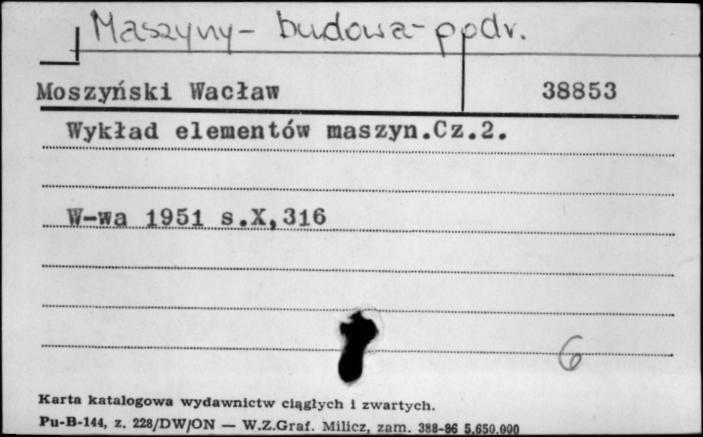 Maszyny - budowa - podr.
Moszyński Wacław 38853
Wykład elementów maszyn.Cz.2.
W-wa 1951 s.X,316
6
Karta katalogowa wydawnictw ciągłych i zwartych.
Pu-B-144, z. 228/DW/ON — W.Z.Graf. Milicz, zam. 388-86 5.650.000